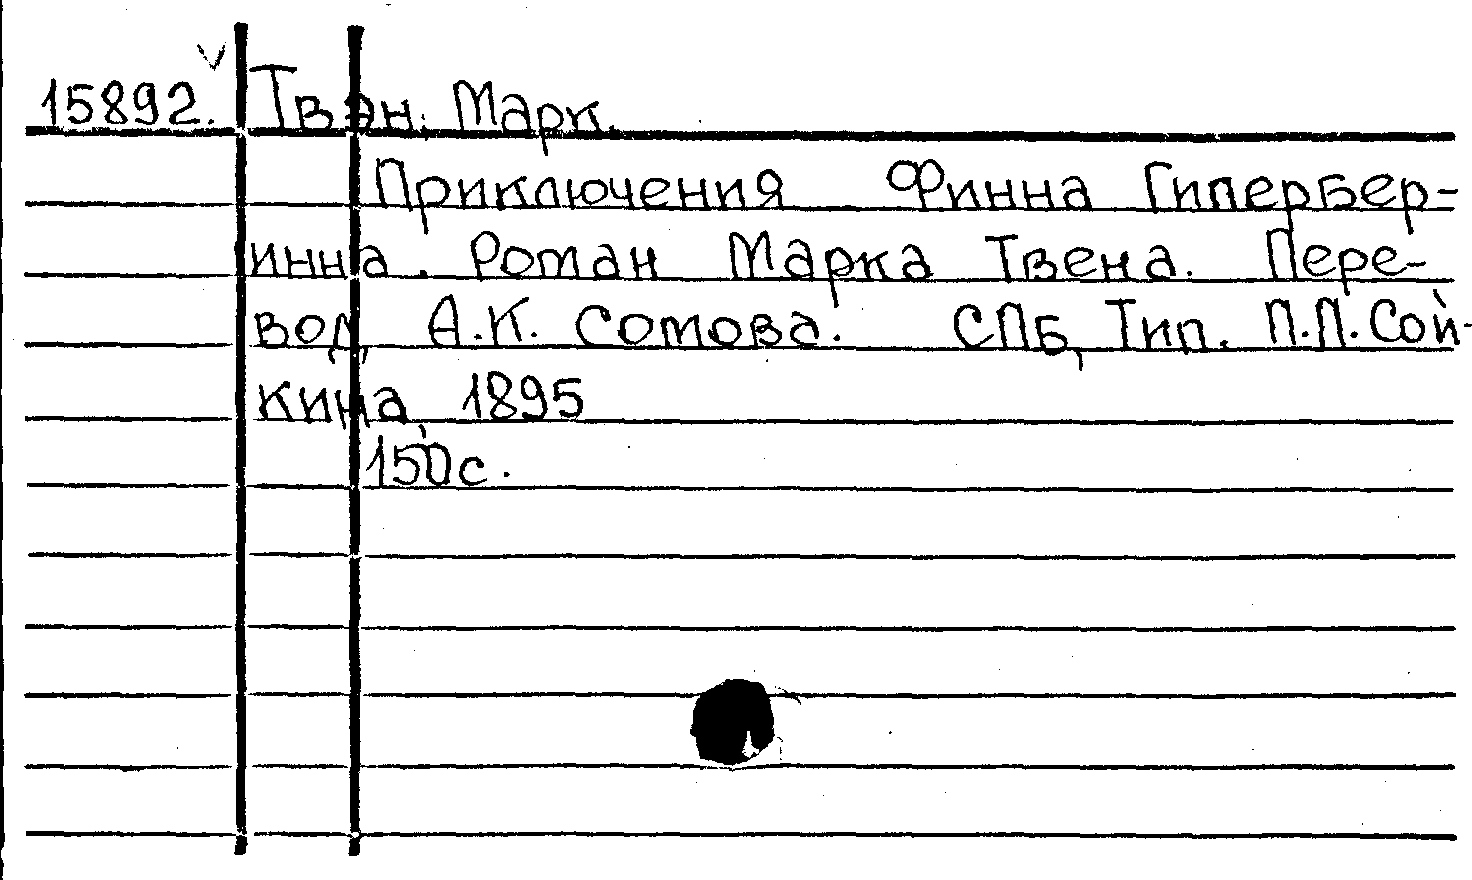 15892. Твэн. Марк.
Приключения Финна Гипербер-
инна. Роман Марка Твена. Пере-
вод А.К. Сомова. СПБ, Тип. П.П. Сой-
кина, 1895
150с.